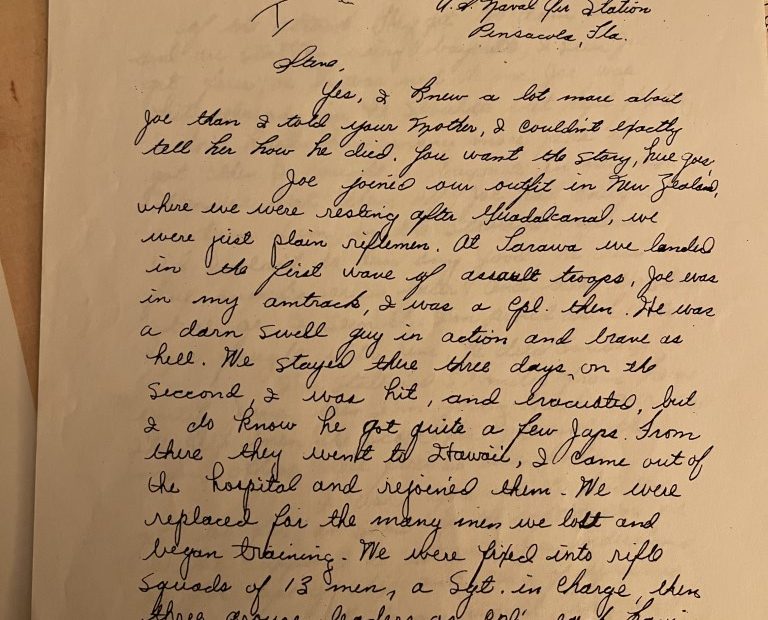 I
U.S. Naval Air Station
Pensacola, Fla.
Steve,
Yes, I knew a lot more about
Joe than I told your Mother, I couldn't exactly
tell her how he died. You want the story, here goes
Joe joined our outfit in New Zealand,
where we were resting after Guadalcanal, we
were just plain riflemen. At Tarawa we landed
in the first wave of assault troops, Joe was
in my amtrack, I was a Cpl. then. He was
a darn swell guy in action and brave as
hell. We stayed there three days, on the
second, I was hit, and evacuated, but
I do know he got quite a few Japs. From
there they went to Hawaii, I came out of
the hospital and rejoined them. We were
replaced for the many men we lost and
began training. We were fixed into rifle
squads of 13 men, a Sgt. in charge, then
three group leaders as Cpl'